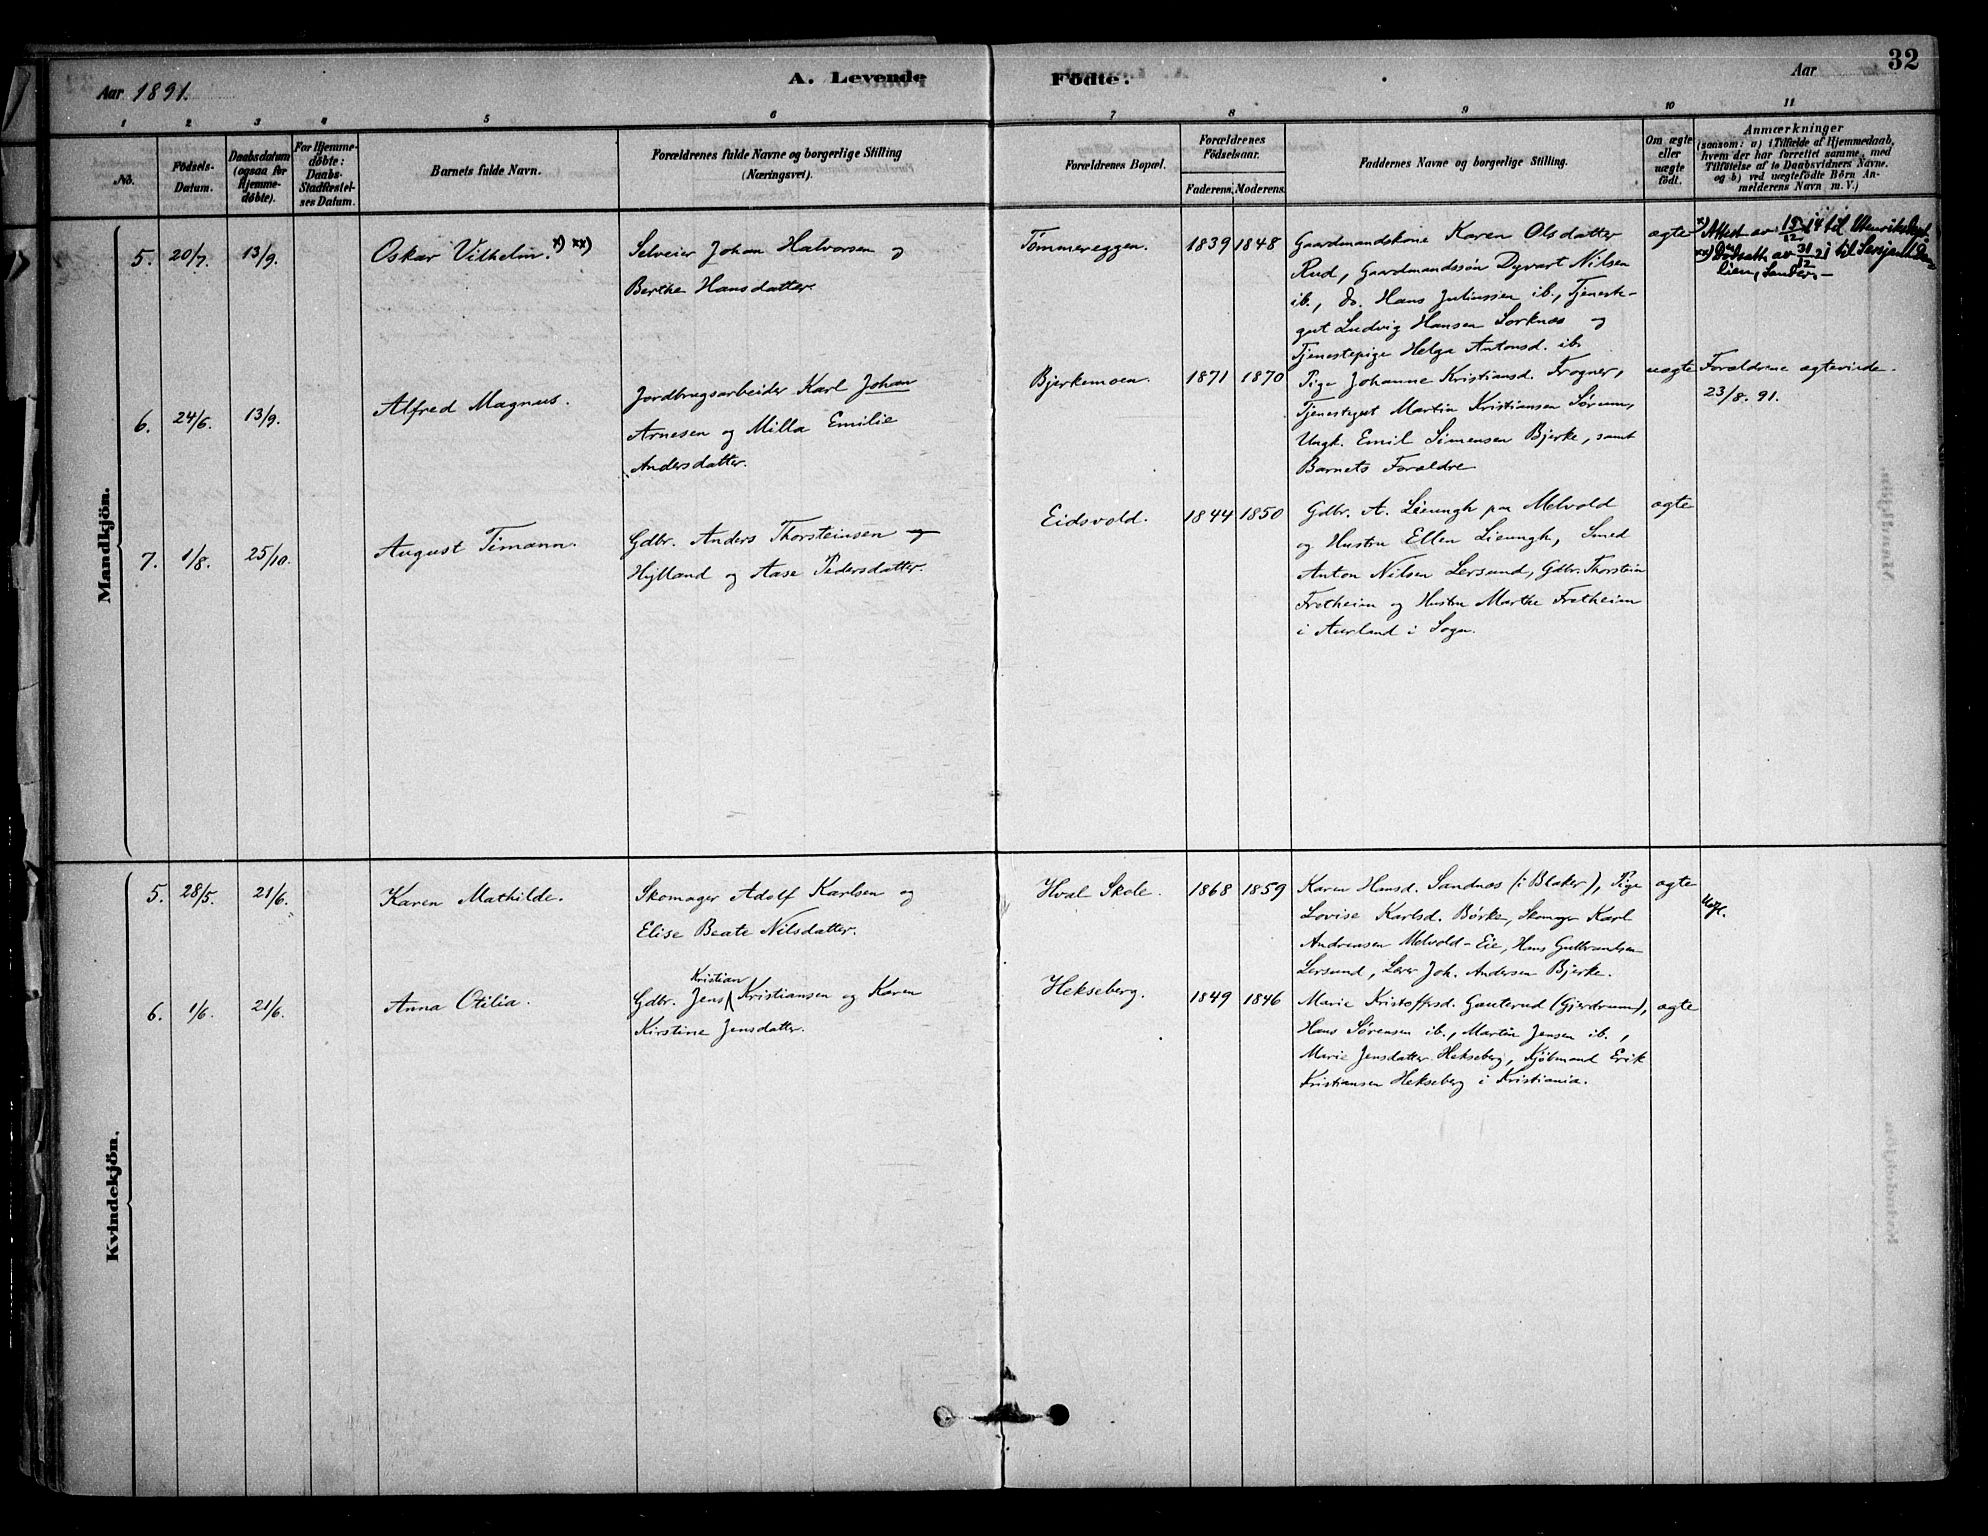 32
A. Levende Födte.
Aar 1891.
Aar
1 2 3 4 5 6 7 8 9 10 11
No.
Födsels-
Datum.
Daabsdatum
(ogsaa for
Hjemme-
døbte).
For Hjemme-
døbte:
Daabs-
Stadfæstel-
ses Datum.
Barnets fulde Navn.
Forældrenes fulde Navne og borgerlige Stilling
(Næringsvei).
Forældrenes Bopæl.
Forældrenes
Födselsaar.
Faderens. Moderens.
Faddernes Navne og borgerlige Stilling.
Om ægte
eller
uægte
födt.
Anmærkninger
(saasom: a) i Tilfælde af Hjemmedaab,
hvem der har forrettet samme, med
Tilføielse af to Daabsvidners Navne,
og b) ved uægtefødte Börn An-
melderens Navn m. V.)
Mandkjön.
5. 20/7. 13/9.
Oskar Vilhelm. x) xx)
Selveier Johan Halvorsen og
Berthe Hansdatter.
Tømmereggen. 1839 1848
Gaardmandskone Karen Olsdatter
Rud, Gaardmandssøn Dyvart Nilsen
ib., do. Hans Juliussen ib., Tjeneste-
gut Ludvig Hansen Sorknæs og
Tjenestepige Helga Antonsd. ib.
ægte
x) Attest av 15/12 14 til
xx) av 31/12 21 til
6. 24/6. 13/9.
Alfred Magnus.
Jordbrugsarbeider Karl Johan
Arnesen og Milla Emilie
Andersdatter.
Bjerkemoen. 1871 1870
Pige Johanne Kristiansd. Frogner,
Tjenestegut Martin Kristiansen Sørum,
Ungk. Emil Simensen Bjerke, samt
Barnets Forældre
uægte
Forældrene ægteviede
23/8. 91.
7. 1/8. 25/10.
August Timann.
Gdbr. Anders Thorsteinsen og
Hylland og Aase Pedersdatter.
Eidsvold. 1844 1850
Gdbr. A. Lieungh paa Melvold
og Hustru Ellen Lieungh, Smed
Anton Nilsen Lersund, Gdbr. Thorstein
Fretheim og Hustru Marthe Fretheim
i Aurland i Sogn.
ægte
Kvindekjön.
5. 28/5. 21/6.
Karen Mathilde.
Skomager Adolf Karlsen og
Elise Beate Nilsdatter.
Hval Skole. 1868 1859
Karen Hansd. Sandnæs (i Blaker), Pige
Lovise Karlsd. Børke, Skomager Karl
Andreasen Melvold-Eie, Hans Gulbrandsen
Lersund, Lærer Joh. Andersen Bjerke.
ægte
6. 1/6. 21/6.
Anna Otilia.
Kristian
Gdbr. Jens Kristiansen og Karen
Kirstine Jensdatter.
Hekseberg. 1849 1846
Marie Kristoffersd. Gauterud (Gjerdrum),
Hans Sørensen ib., Martin Jensen ib.,
Marie Jensdatter Hekseberg, Kjøbmand Erik
Kristiansen Hekseberg i Kristiania.
ægte